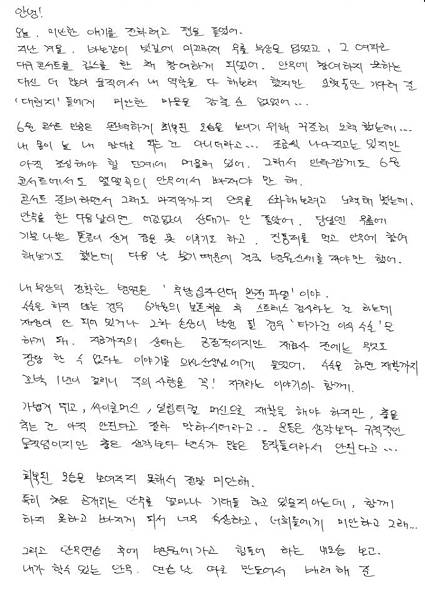 안녕!
오늘, 미안한 얘기를 전하려고 펜을 들었어.
지난 겨울, 나는 길이 빗길에 미끄러져 무릎 부상을 입었었고, 그 여파로
대구콘서트를 깁스를 한 채 참여하게 되었어. 안무에 참여하지 못하는
대신 더 많이 움직여서 내 역할을 다 해보려 했지만 오랫동안 기다려 준
들에게 미안한 마음을 감출 수 없었어...
6월 콘서트 만큼은 완벽하게 회복된 모습을 보이기 위해 꾸준히 노력했는데...
내 몸이 늘 내 맘대로 되는 건 아니더라고... 조금씩 나아지고는 있지만
아직 조심해야 할 단계에 머물러 있어. 그래서 안타깝게도 6월
콘서트에서도 몇몇곡의 안무에서 빠져야만 해.
콘서트 준비하면서 그래도 마지막까지 안무를 소화해보려고 노력해 봤는데,
안무를 한 다음날이면 어김없이 상태가 안 좋았어. 당일엔 무릎에
기분 나쁜 통증이 생겨 잠을 못 이루기도 하고, 진통제를 먹고 안무에 참여
해보기도 했는데 다음 날 붓기 때문에 결국 병원신세를 져야만 했어.
내 부상의 정확한 병명은 '후방십자인대 완전파열' 이야.
수술을 하지 않는 경우 6개월의 보조기 착용 후 스트레스 검사라는 걸 하는데
재생이 안 되어 있거나 2차 손상이 발생 될 경우 '타가건 이식 수술'을
하게 돼. 지금까지의 상태는 긍정적이지만 재검사 전에는 무엇도
장담 할 수 없다는 이야기를 의사선생님에게 들었어. 수술을 하면 재활까지
꼬박 1년이 걸리니 주의사항을 꼭! 지키라는 이야기와 함께.
가볍게 걷고, 싸이클머신, 일립티컬 머신으로 재활을 해야 하지만, 춤을
추는 건 아직 안된다고 절대 하시더라고... 운동은 생각보다 규칙적인
움직임이지만 춤은 생각보다 변수가 많은 동작들이라서 안된다고...
회복된 모습을 보여주지 못해서 정말 미안해.
특히 처음 공개되는 안무를 얼마나 기대를 하고 있을지 아는데, 함께
하지 못하고 빠지게 되서 너무 속상하고, 너희들에게 미안하고 그래...
그리고 안무연습 후에 병원에 가고 힘들어 하는 내 모습 보고,
내가 할 수 있는 안무, 연습 날 따로 만들어서 배려해 준